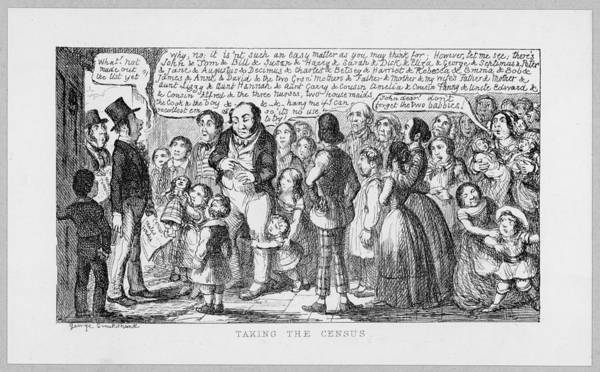 What! not
made out
the list yet
Why, no; it is'nt such an easy matter as you may think for; However, let me see, there's
John & Tom & Bill & Susan & Harry & Sarah & Dick & Eliza & George & Septimus & Peter
& Jane & Augustus & Decimus & Charles & Betsey & Harriot & Rebecca & Emma & Bob &
James & Ann & David & the two Gran' Mothers & Father & Mother & my wife's Father & Mother &
Aunt Lizzy & Aunt Hannah & Aunt Carry & Cousin Amelia & Cousin Fanny & Uncle Edward &
& Cousin Alfred & the three Nurses, two housemaids
the Cook & the Boy & & & hang me if I can
recollect em so it's no use
to try
John dear! don't
forget the two babbies!
George Cruikshank
TAKING THE CENSUS